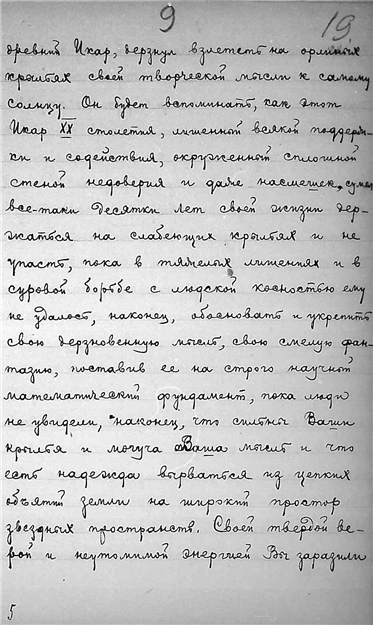 9
19.
древний Икар, дерзнул взлететь на орлиных
крыльях своей творческой мысли к самому
солнцу. Он будет вспоминать, как этот
Икар XX столетия, лишенный всякой поддерж-
ки и содействия, окруженный сплошной
стеной недоверия и даже насмешек, сумел
все-таки десятки лет своей жизни дер-
жаться на слабеющих крыльях и не
упасть, пока в тяжелых лишениях и в
суровой борьбе с людской косностью ему
не удалось, наконец, обосновать и укрепить
свою дерзновенную мысль, свою смелую фан-
тазию, поставив ее на строго научный
математический фундамент, пока люди
не увидели, наконец, что сильны Ваши
крылья и могуча Ваша мысль и что
есть надежда вырваться из цепких
объятий земли на широкий простор
звездных пространств. Своей твердой ве-
рой и неутомимой энергией Вы заразили
5